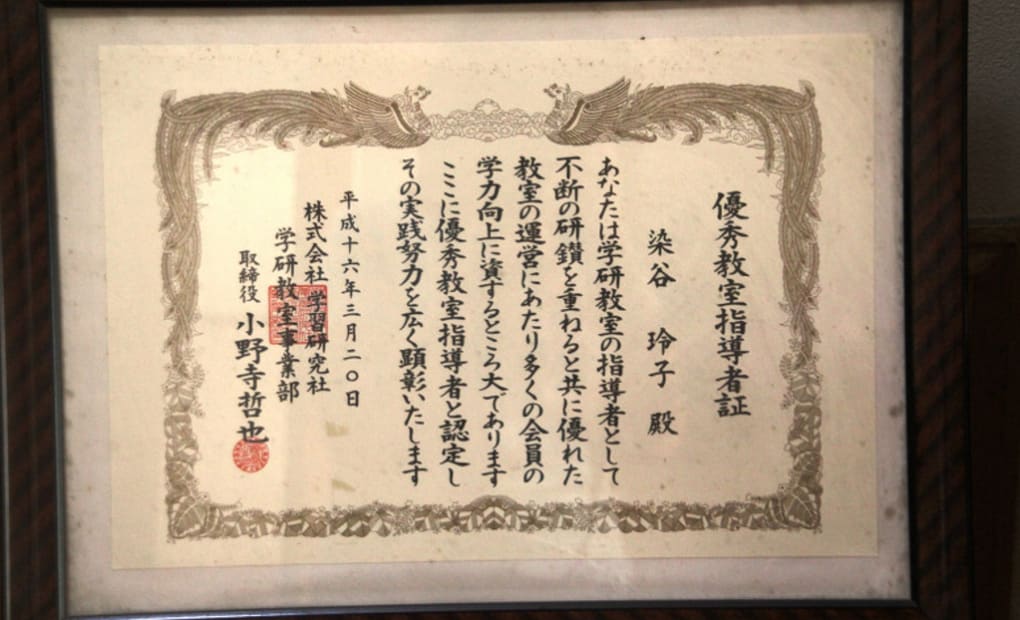 優秀教室指導者証
染谷 玲子 殿
あなたは学研教室の指導者として
不断の研鑽を重ねると共に優れた
教室の運営にあたり多くの会員の
学力向上に資するところ大であります
ここに優秀教室指導者と認定し
その実践努力を広く顕彰いたします
平成十六年三月二〇日
株式会社 学習研究社
学研教室事業部
取締役 小野寺哲也